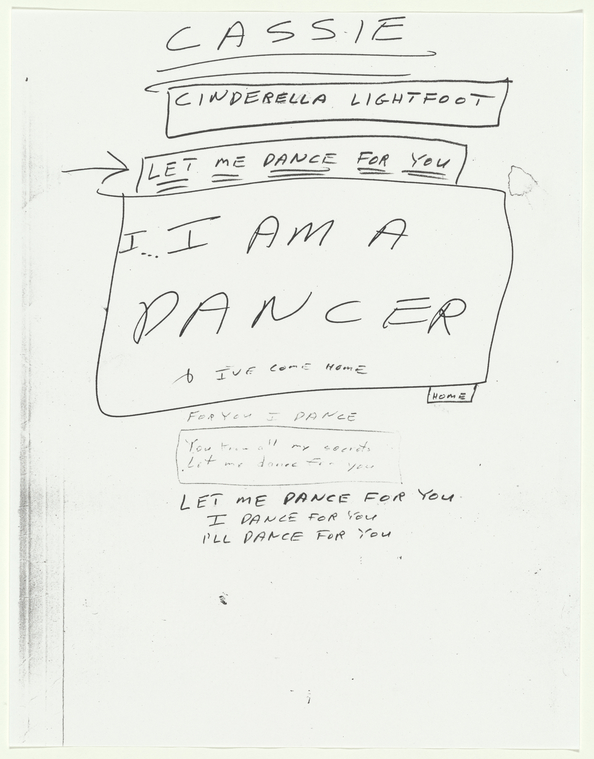 CASSIE
CINDERELLA LIGHTFOOT
LET ME DANCE FOR YOU
I... I AM A
DANCER
& I'VE COME HOME
HOME
FOR YOU I DANCE
You know all my secrets
Let me dance for you
LET ME DANCE FOR YOU
I DANCE FOR YOU
I'LL DANCE FOR YOU